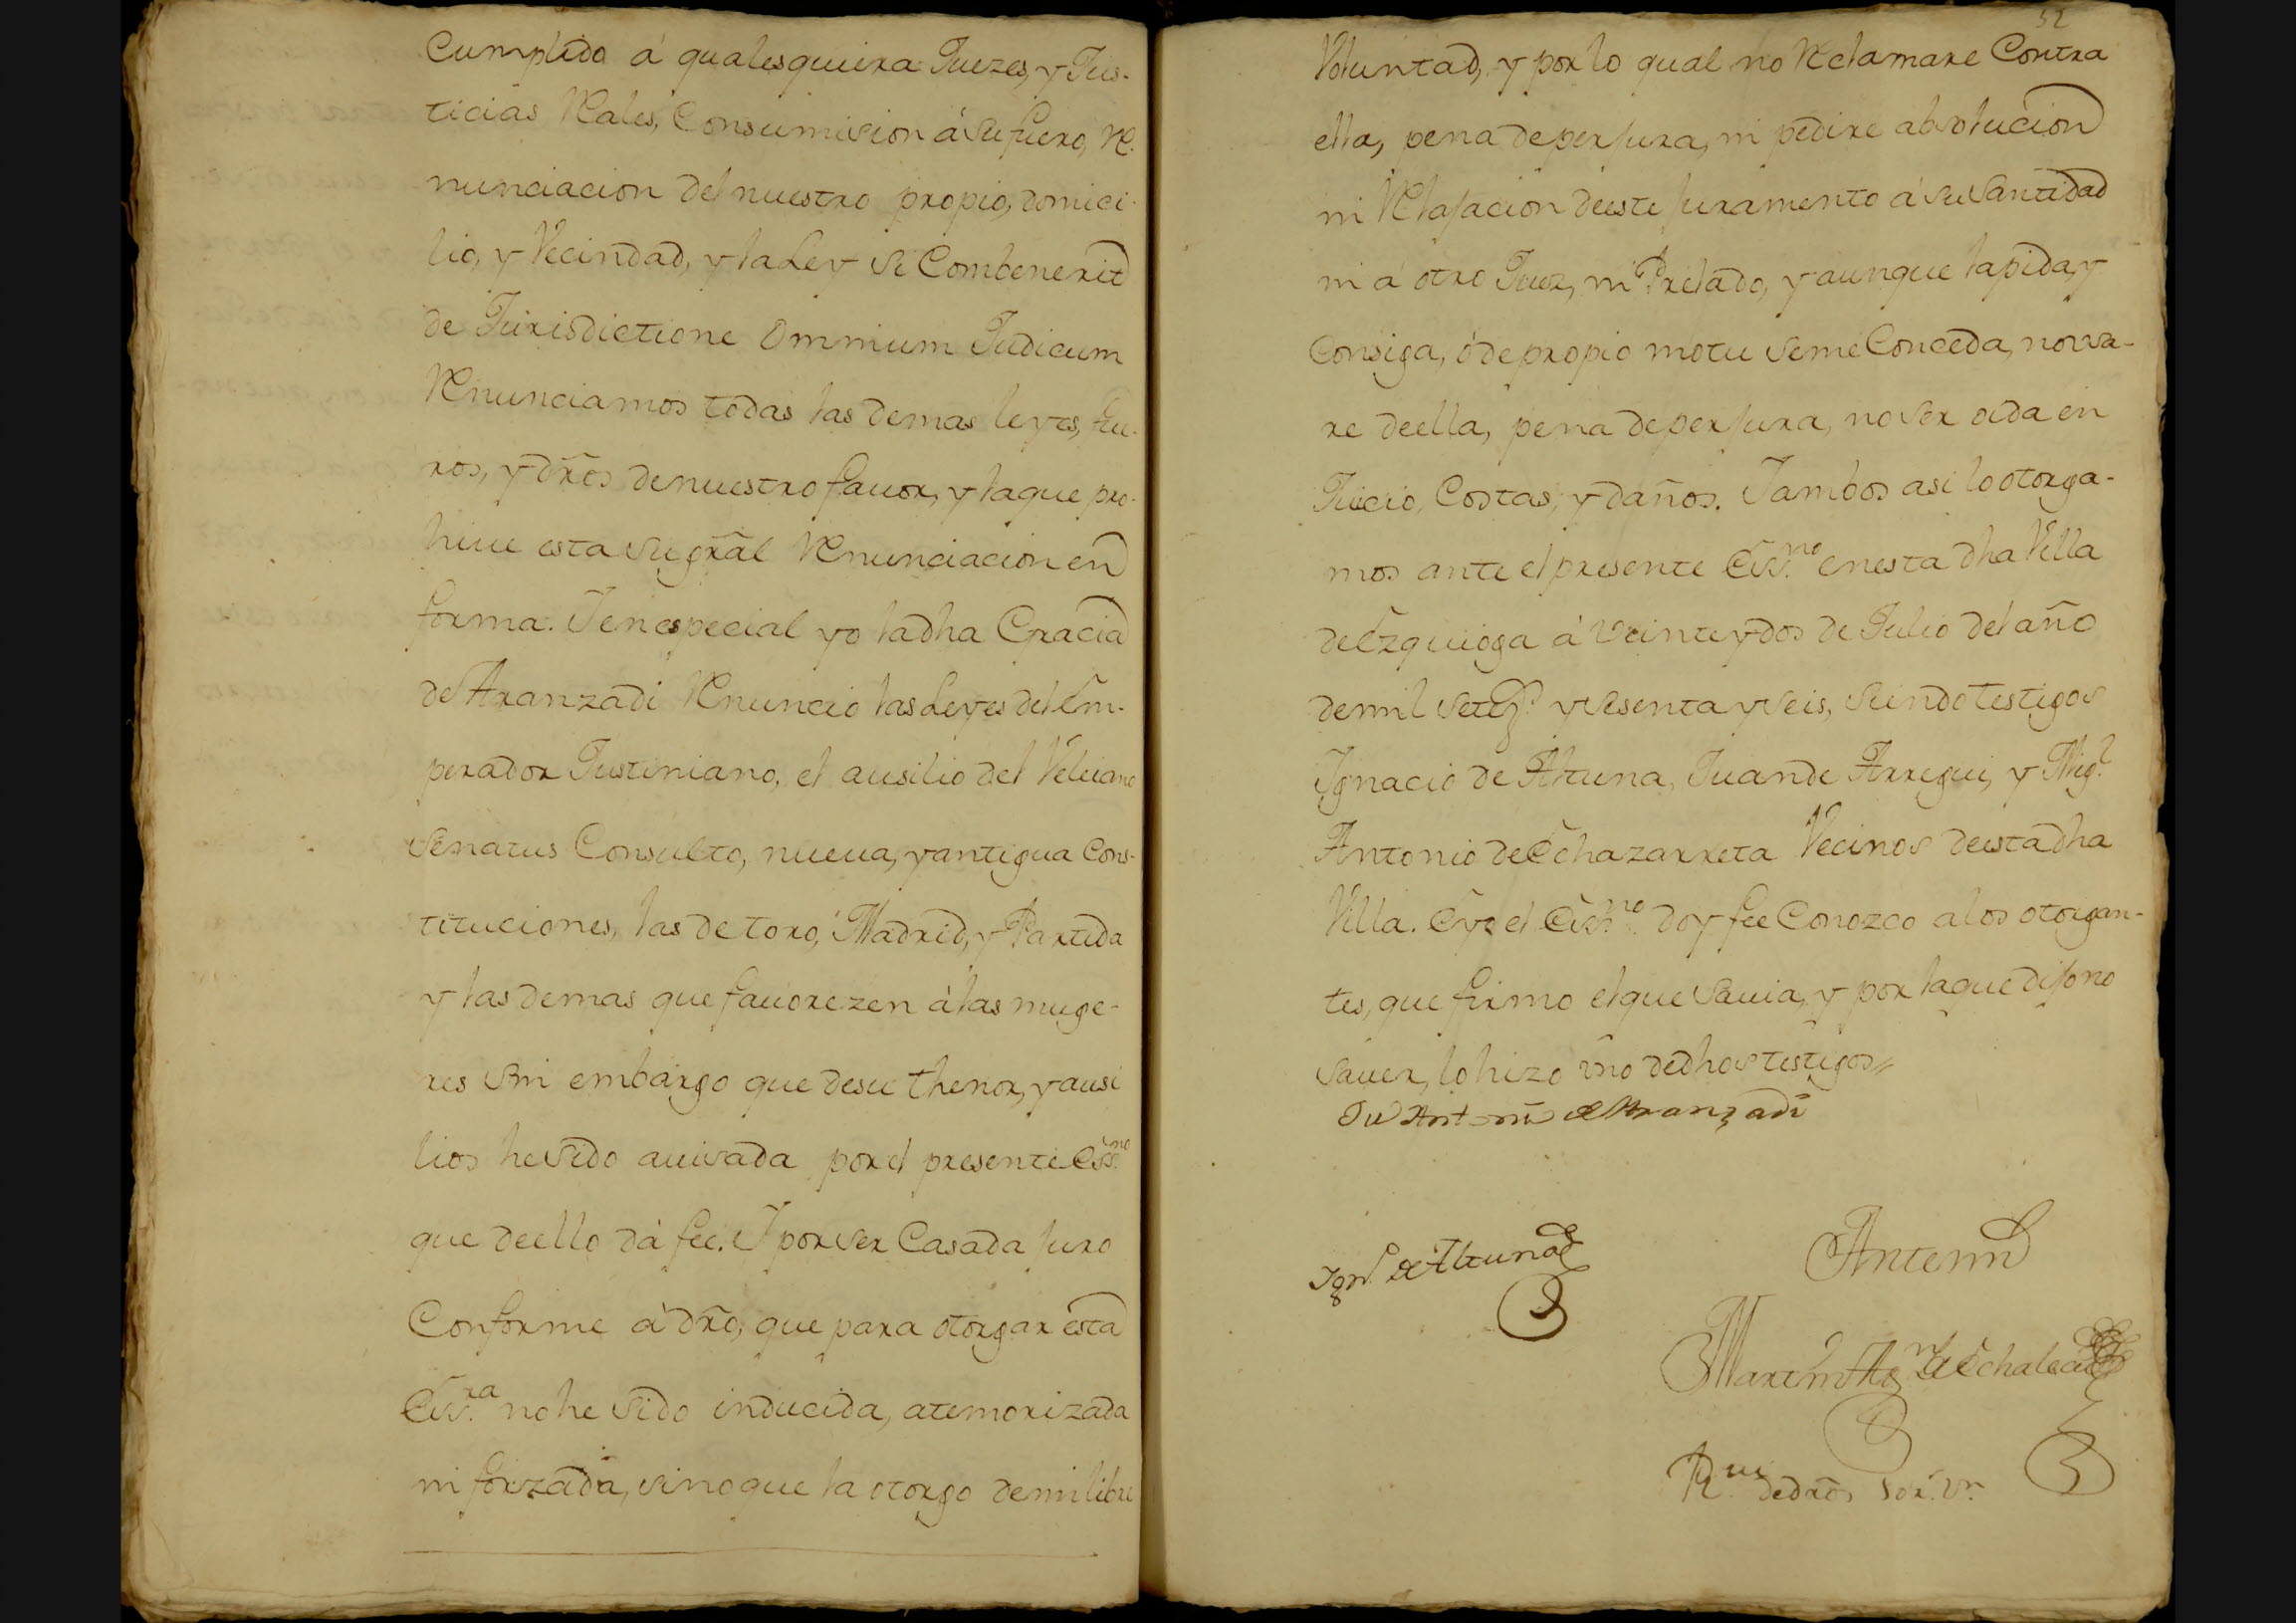 Cumplido á qualesquiera Juezes, y Jus-
ticias Reales, Consumision á su fuero, Re-
nunciacion del nuestro propio, domici-
lio, y Vecindad, y la Ley si Combenerit
de Jurisdictione Omnium Judicum
Renunciamos todas las demas leyes, fue-
ros, y dr̃os de nuestro fauor, y la que pro-
hiue esta su gr̃al Renunciacion en
forma. Y en especial yo la dha Gracia
de Aranzadi Renuncio las Leyes del Em-
perador Justiniano, el ausilio del Veleiano
Senatus Consulto, nueua, y antigua Cons-
tituciones, las de toro, Madrid, y Partida
y las demas que fauorezen á las muge-
res sin embargo que de su thenor, y ausi
lios he sido auisada por el presente Ess.no
que de ello dá fee. Y por ser Casada juro
Conforme á dr̃o, que para otorgar esta
Ess.ra no he sido inducida, atemorizada
ni forzada, sino que la otorgo de mi libre
52
Voluntad, y por lo qual no Reclamare Contra
ella, pena de perjura, ni pedire absolucion
ni Relajacion de este juramento á su Santidad
ni á otro Juez, ni Prelado, y aunque la pida, y
Consiga, ó de propio motu se me Conceda, no vsa-
re de ella, pena de perjura, no ser oida en
Juicio, Costas, y daños. Y ambos asi lo otorga-
mos ante el presente Ess.no en esta dha Villa
de Ezquioga á veinte y dos de Julio del año
de mil setez.s y sesenta y seis, siendo testigos
Ignacio de Altuna, Juan de Arregui, y Mig.l
Antonio de Echazarreta Vecinos de esta dha
Villa. E yo el Ess.no doy fee Conozco a los otorgan-
tes, que firmo el que sauia, y por la que dijo no
sauer, lo hizo vno de dhos testigos
Ju Anto de Aranzadi
Ign.o de Altuna
Antemi
Martin Ag.n de Echalecu
R.us de dr̃os